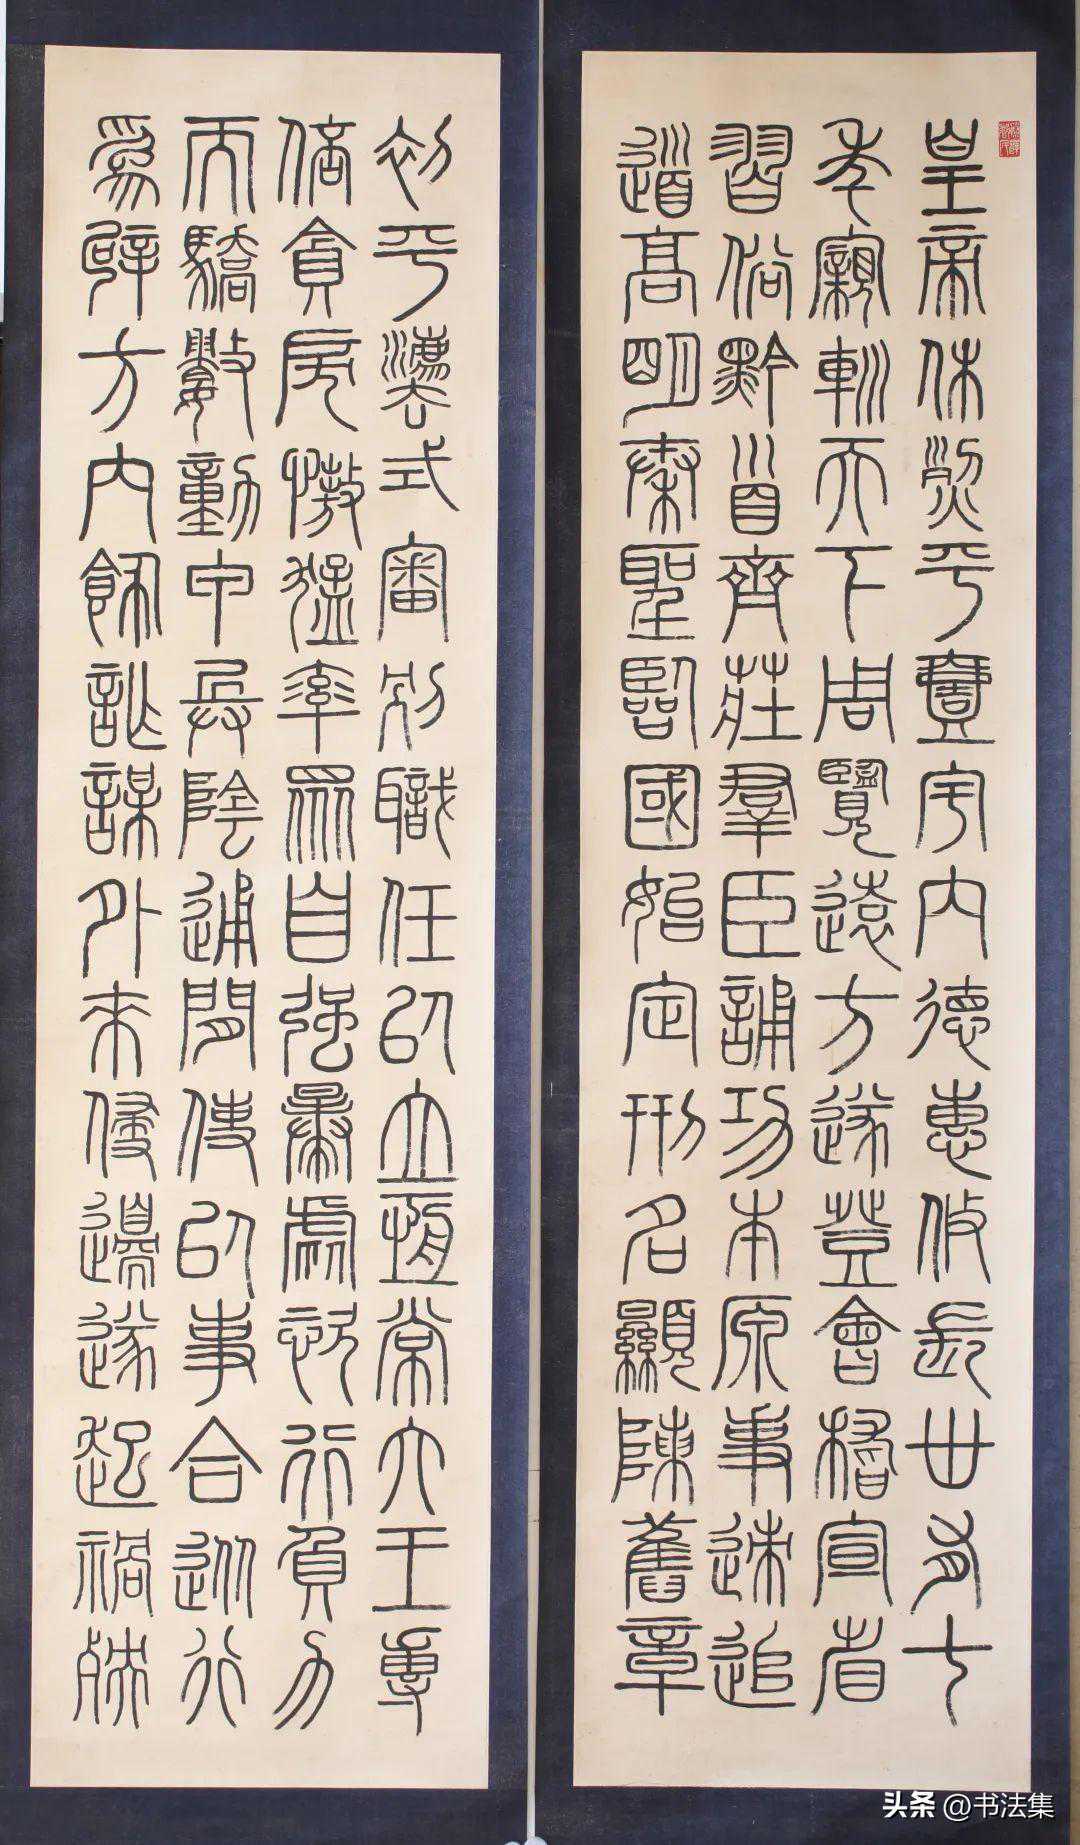 皇帝休烈平壹宇内德惠攸長丗有七
年親䡅天下周覽遠方遂登會稽宣省
習俗黔首齊莊羣臣誦功本原事速追
道高明秦聖臨國始定刑名顯陳舊章
初平灋式審別職任以立恆常六王專
倍貪戾慠猛率眾自強暴虐恣行負力
而驕數動甲兵陰通閒使以事合從行
為辟方内飾詐謀外來侵邊遂起禍殃
头条 @书法集